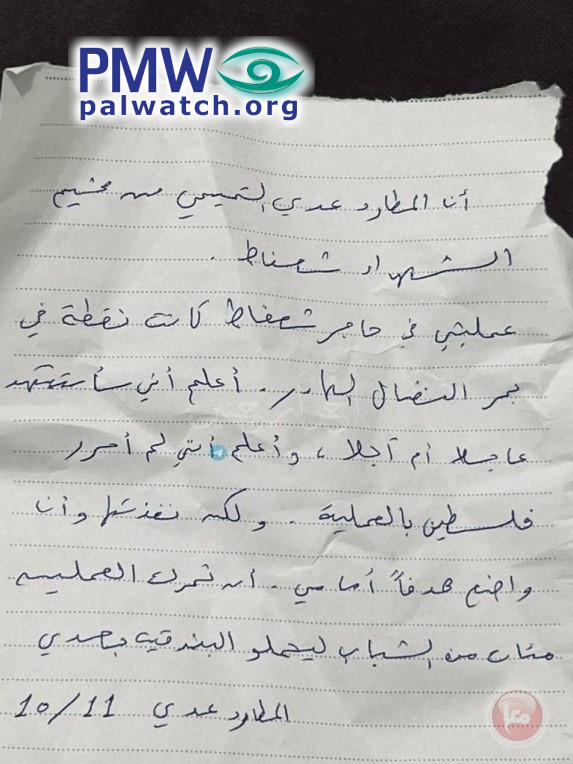 PMW
palwatch.org
أنا المطارد عدي التميمي من مخيم
الشهداء شعفاط .
عمليتي في حاجز شعفاط كانت نقطة في
بحر النضال الهادر. أعلم أني سأستشهد
عاجلا أم آجلا ، وأعلم أنني لم أحرر
فلسطين بالعملية . ولكن نفذتها وأنا
واضع هدفاً أمامي . أن تحرك العملية
مئات من الشباب ليحملو البندقية بعدي
المطارد عدي 10/11
معا